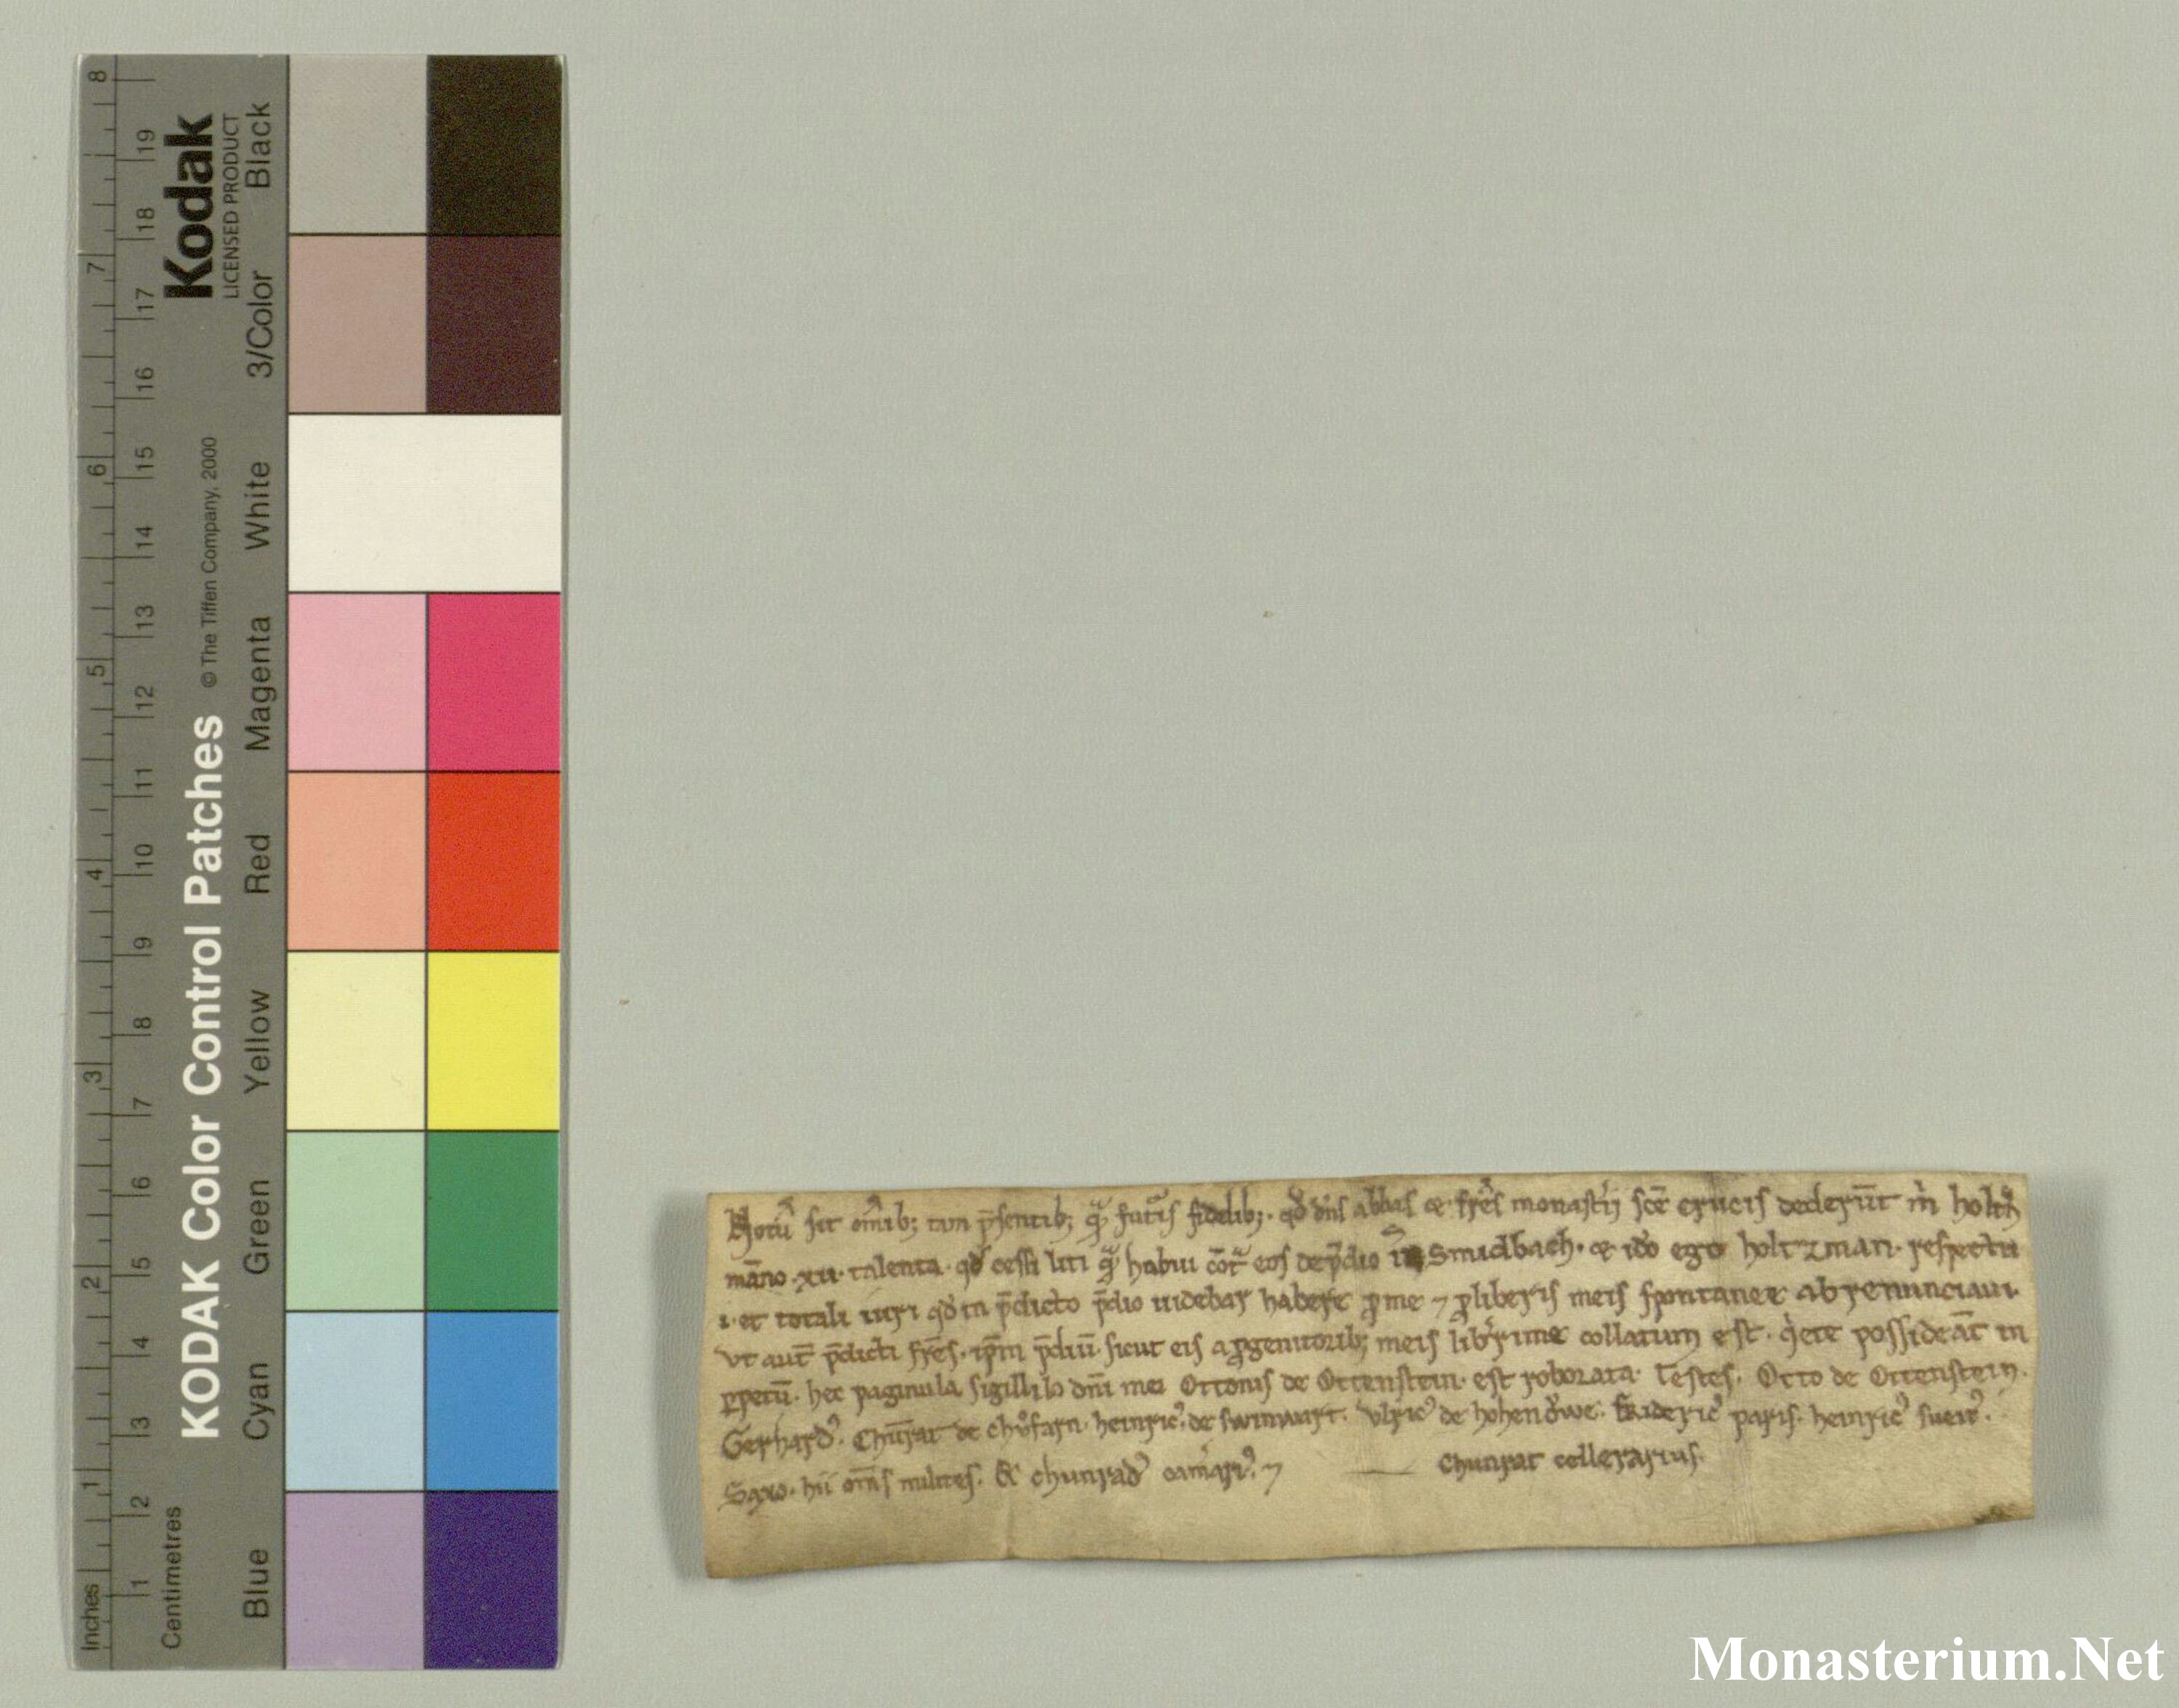 KODAK Color Control Patches
© The Tiffen Company, 2000
Kodak
LICENSED PRODUCT
Inches 1 2 3 4 5 6 7 8
Centimetres 1 2 3 4 5 6 7 8 9 10 11 12 13 14 15 16 17 18 19
Blue Cyan Green Yellow Red Magenta White 3/Color Black
Notū sit om̄ib; tam p̄sentib; futis fidelib;. qd dn̄s abbas et fr̄es monastij sc̄e crucis dederūt m
māno .xii. talenta. qd cessi liti habui eos de p̄dio in Smidbach. et ido ego holtzman. respectu
i. et totali iuri qd in p̄dicto p̄dio uidebar habere ꝓ me ⁊ ꝓ liberis meis spontanee abrenunciaui.
Vt aut̄ p̄dicti fr̄es. ip̄m p̄diū. sicut eis a ꝓgenitorib; meis collatum est. possideāt in
ꝑpetuū. hec paginula sigillo dn̄i mei Ottonis de Ottenstein. est roborata. Testes. Otto de Ottenstein.
Gerhard⁹. Chūrat de heinric⁹. de Vlric⁹ de Frideric⁹ paris. heinric⁹
Saxo. hii om̄s milites. Et chunrad⁹ cam̄ari⁹. ⁊ — Chunrat cellerarius.
Monasterium.Net